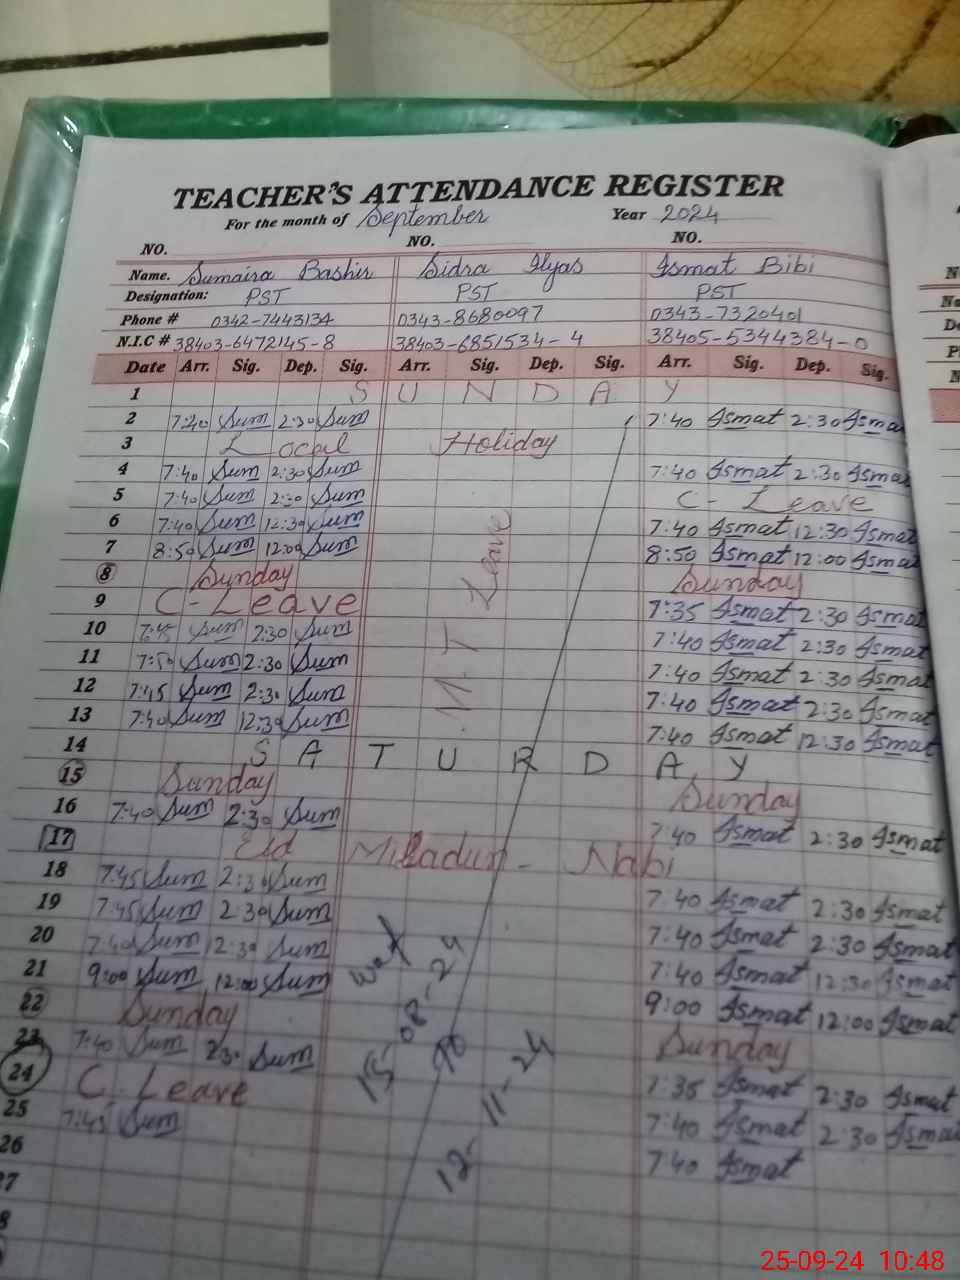 TEACHER'S ATTENDANCE REGISTER
For the month of September Year 2024
NO. NO. NO.
Name. Sumaira Bashir Sidra Ilyas Ismat Bibi
Designation: PST PST PST
Phone # 0342-7443134 0343-8680097 0343-7320401
N.I.C # 38403-6472145-8 38403-6851534-4 38405-5344384-0
Date Arr. Sig. Dep. Sig. Arr. Sig. Dep. Sig. Arr. Sig. Dep. Sig.
1 S U N D A Y
2 7:40 Sum 2:30 Sum 7:40 Ismat 2:30 Ismat
3 Local Holiday
4 7:40 Sum 2:30 Sum 7:40 Ismat 2:30 Ismat
5 7:40 Sum 2:30 Sum C- Leave
6 7:40 Sum 12:30 Sum 7:40 Ismat 12:30 Ismat
7 8:50 Sum 12:00 Sum 8:50 Ismat 12:00 Ismat
8 Sunday Sunday
9 C-Leave 7:35 Ismat 2:30 Ismat
10 7:45 Sum 2:30 Sum 7:40 Ismat 2:30 Ismat
11 7:50 Sum 2:30 Sum 7:40 Ismat 2:30 Ismat
12 7:45 Sum 2:30 Sum 7:40 Ismat 2:30 Ismat
13 7:40 Sum 12:30 Sum 7:40 Ismat 12:30 Ismat
14 S A T U R D A Y
15 Sunday Sunday
16 7:40 Sum 2:30 Sum 7:40 Ismat 2:30 Ismat
17 Eid Miladun-Nabi
18 7:45 Sum 2:30 Sum 7:40 Ismat 2:30 Ismat
19 7:45 Sum 2:30 Sum 7:40 Ismat 2:30 Ismat
20 7:40 Sum 12:30 Sum 7:40 Ismat 12:30 Ismat
21 9:00 Sum 12:00 Sum 9:00 Ismat 12:00 Ismat
22 Sunday Sunday
23 7:40 Sum 2:30 Sum 7:35 Ismat 2:30 Ismat
24 C. Leave 7:40 Ismat 2:30 Ismat
25 7:45 Sum 7:40 Ismat
26
M.T Leave
wef 15-08-24
To
12-11-24
25-09-24 10:48